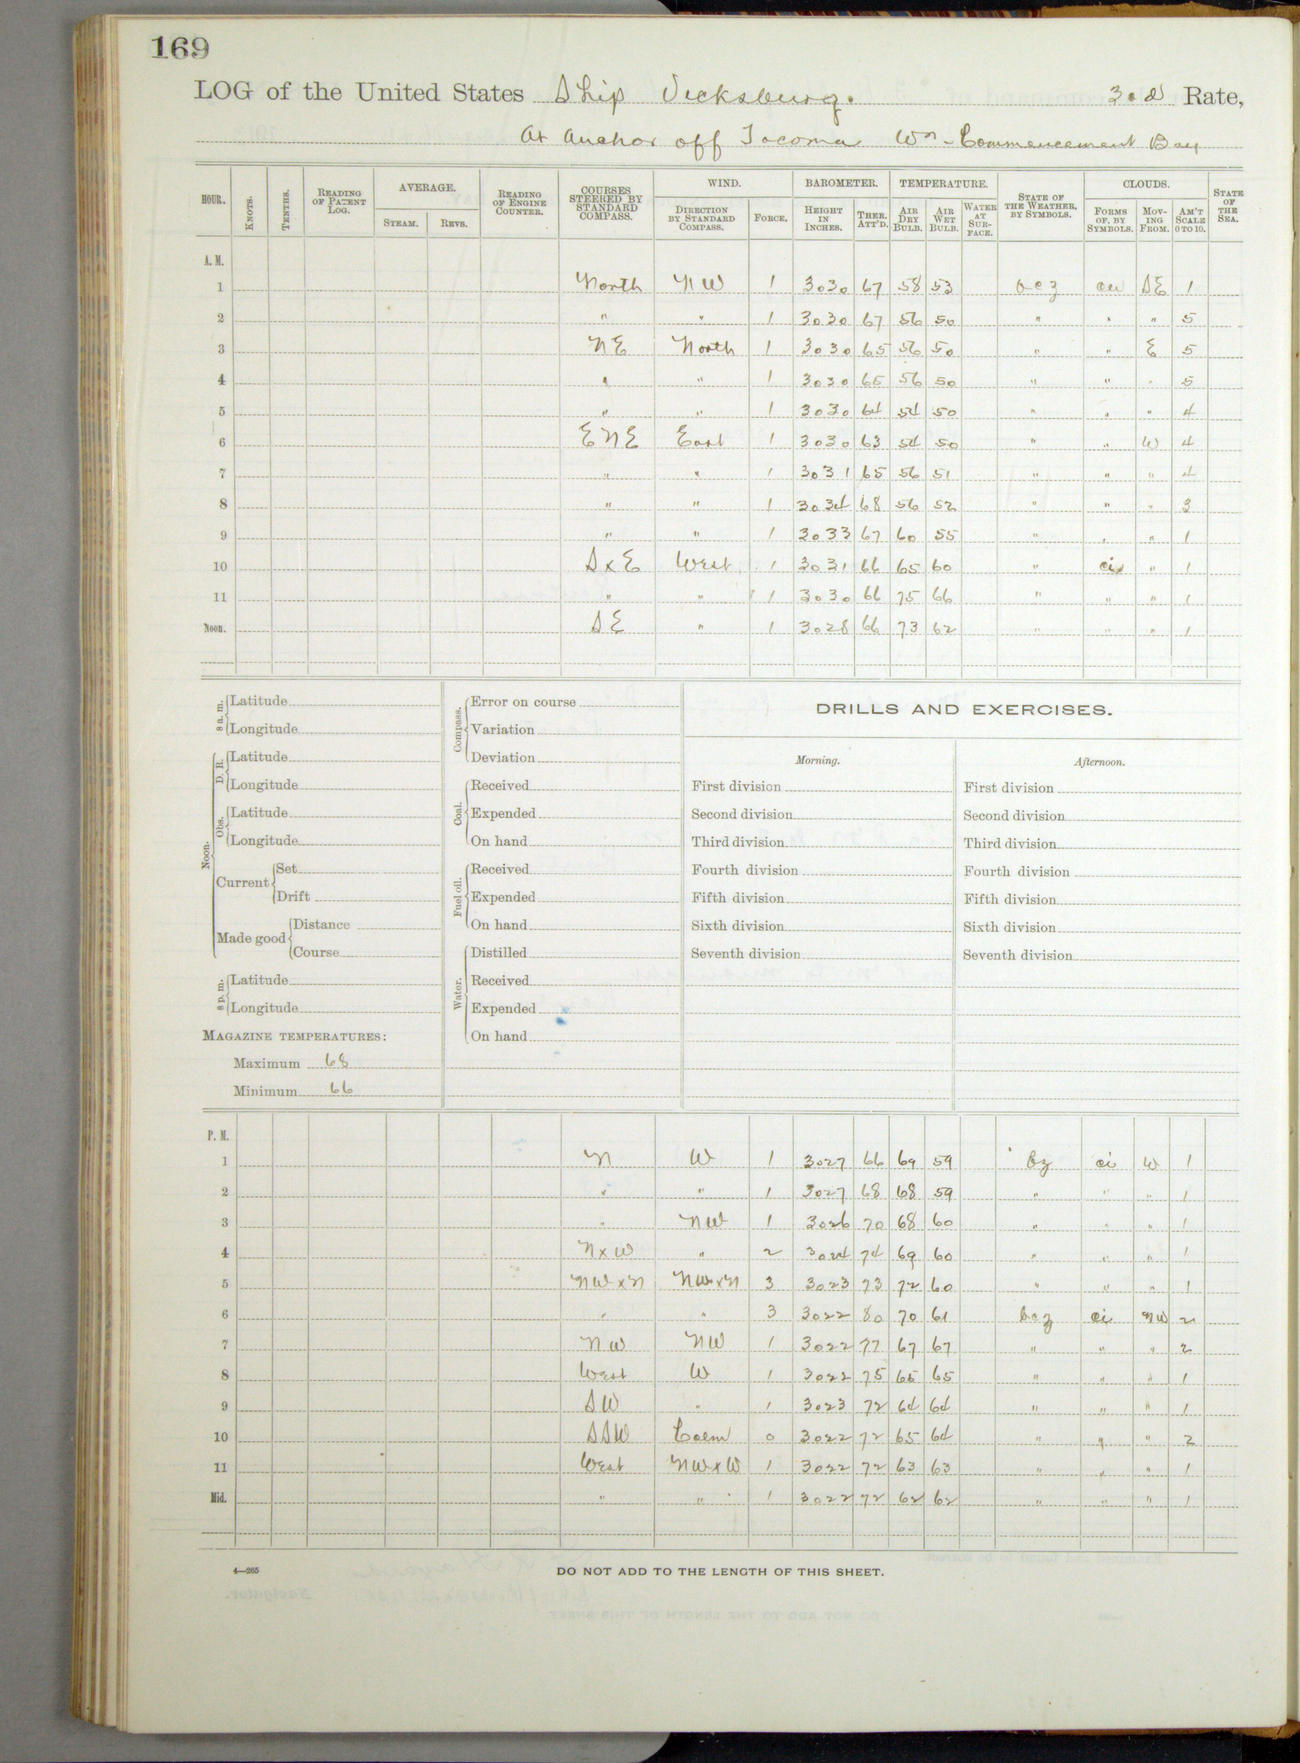 169
LOG of the United States Ship Vicksburg. 3rd Rate,
At Anchor off Tacoma Wn - Commencement Bay
HOUR. KNOTS. TENTHS. READING OF PATENT LOG. AVERAGE. STEAM. REVS. READING OF ENGINE COUNTER. COURSES STEERED BY STANDARD COMPASS. WIND. DIRECTION BY STANDARD COMPASS. FORCE. BAROMETER. HEIGHT IN INCHES. THER. ATT'D. TEMPERATURE. AIR DRY BULB. AIR WET BULB. WATER AT SURFACE. STATE OF THE WEATHER, BY SYMBOLS. CLOUDS. FORMS OF, BY SYMBOLS. MOVING FROM. AM'T SCALE 0 TO 10. STATE OF THE SEA.
A. M.
1 North NW 1 3030 67 58 53 bcz cu SE 1
2 " " 1 3030 67 56 50 " " " 5
3 NE North 1 3030 65 56 50 " " E 5
4 " " 1 3030 65 56 50 " " " 5
5 " " 1 3030 64 54 50 " " " 4
6 ENE East 1 3030 63 54 50 " " W 4
7 " " 1 3031 65 56 51 " " " 4
8 " " 1 3034 68 56 52 " " " 3
9 " " 1 3033 67 60 55 " " " 1
10 SxE West 1 3031 66 65 60 " ci " 1
11 " " 1 3030 66 75 66 " " " 1
Noon. SE " 1 3028 66 73 62 " " " 1
8 a. m. Latitude
Longitude
Noon. D. R. Latitude
Longitude
Obs. Latitude
Longitude
Current Set
Drift
Made good Distance
Course
8 p. m. Latitude
Longitude
MAGAZINE TEMPERATURES:
Maximum 68
Minimum 66
Compass. Error on course
Variation
Deviation
Coal. Received
Expended
On hand
Fuel oil. Received
Expended
On hand
Water. Distilled
Received
Expended
On hand
DRILLS AND EXERCISES.
Morning.
First division
Second division
Third division
Fourth division
Fifth division
Sixth division
Seventh division
Afternoon.
First division
Second division
Third division
Fourth division
Fifth division
Sixth division
Seventh division
P. M.
1 N W 1 3027 66 69 59 bz ci W 1
2 " " 1 3027 68 68 59 " " " 1
3 " NW 1 3026 70 68 60 " " " 1
4 NxW " 2 3024 74 69 60 " " " 1
5 NWxN NWxN 3 3023 73 72 60 " " " 1
6 " " 3 3022 80 70 61 bcz ci NW 2
7 NW NW 1 3022 77 67 67 " " " 2
8 West W 1 3022 75 65 65 " " " 1
9 SW " 1 3023 72 64 64 " " " 1
10 SSW Calm 0 3022 72 65 64 " " " 2
11 West NWxW 1 3022 72 63 63 " " " 1
Mid. " " 1 3022 72 62 62 " " " 1
4—265
DO NOT ADD TO THE LENGTH OF THIS SHEET.